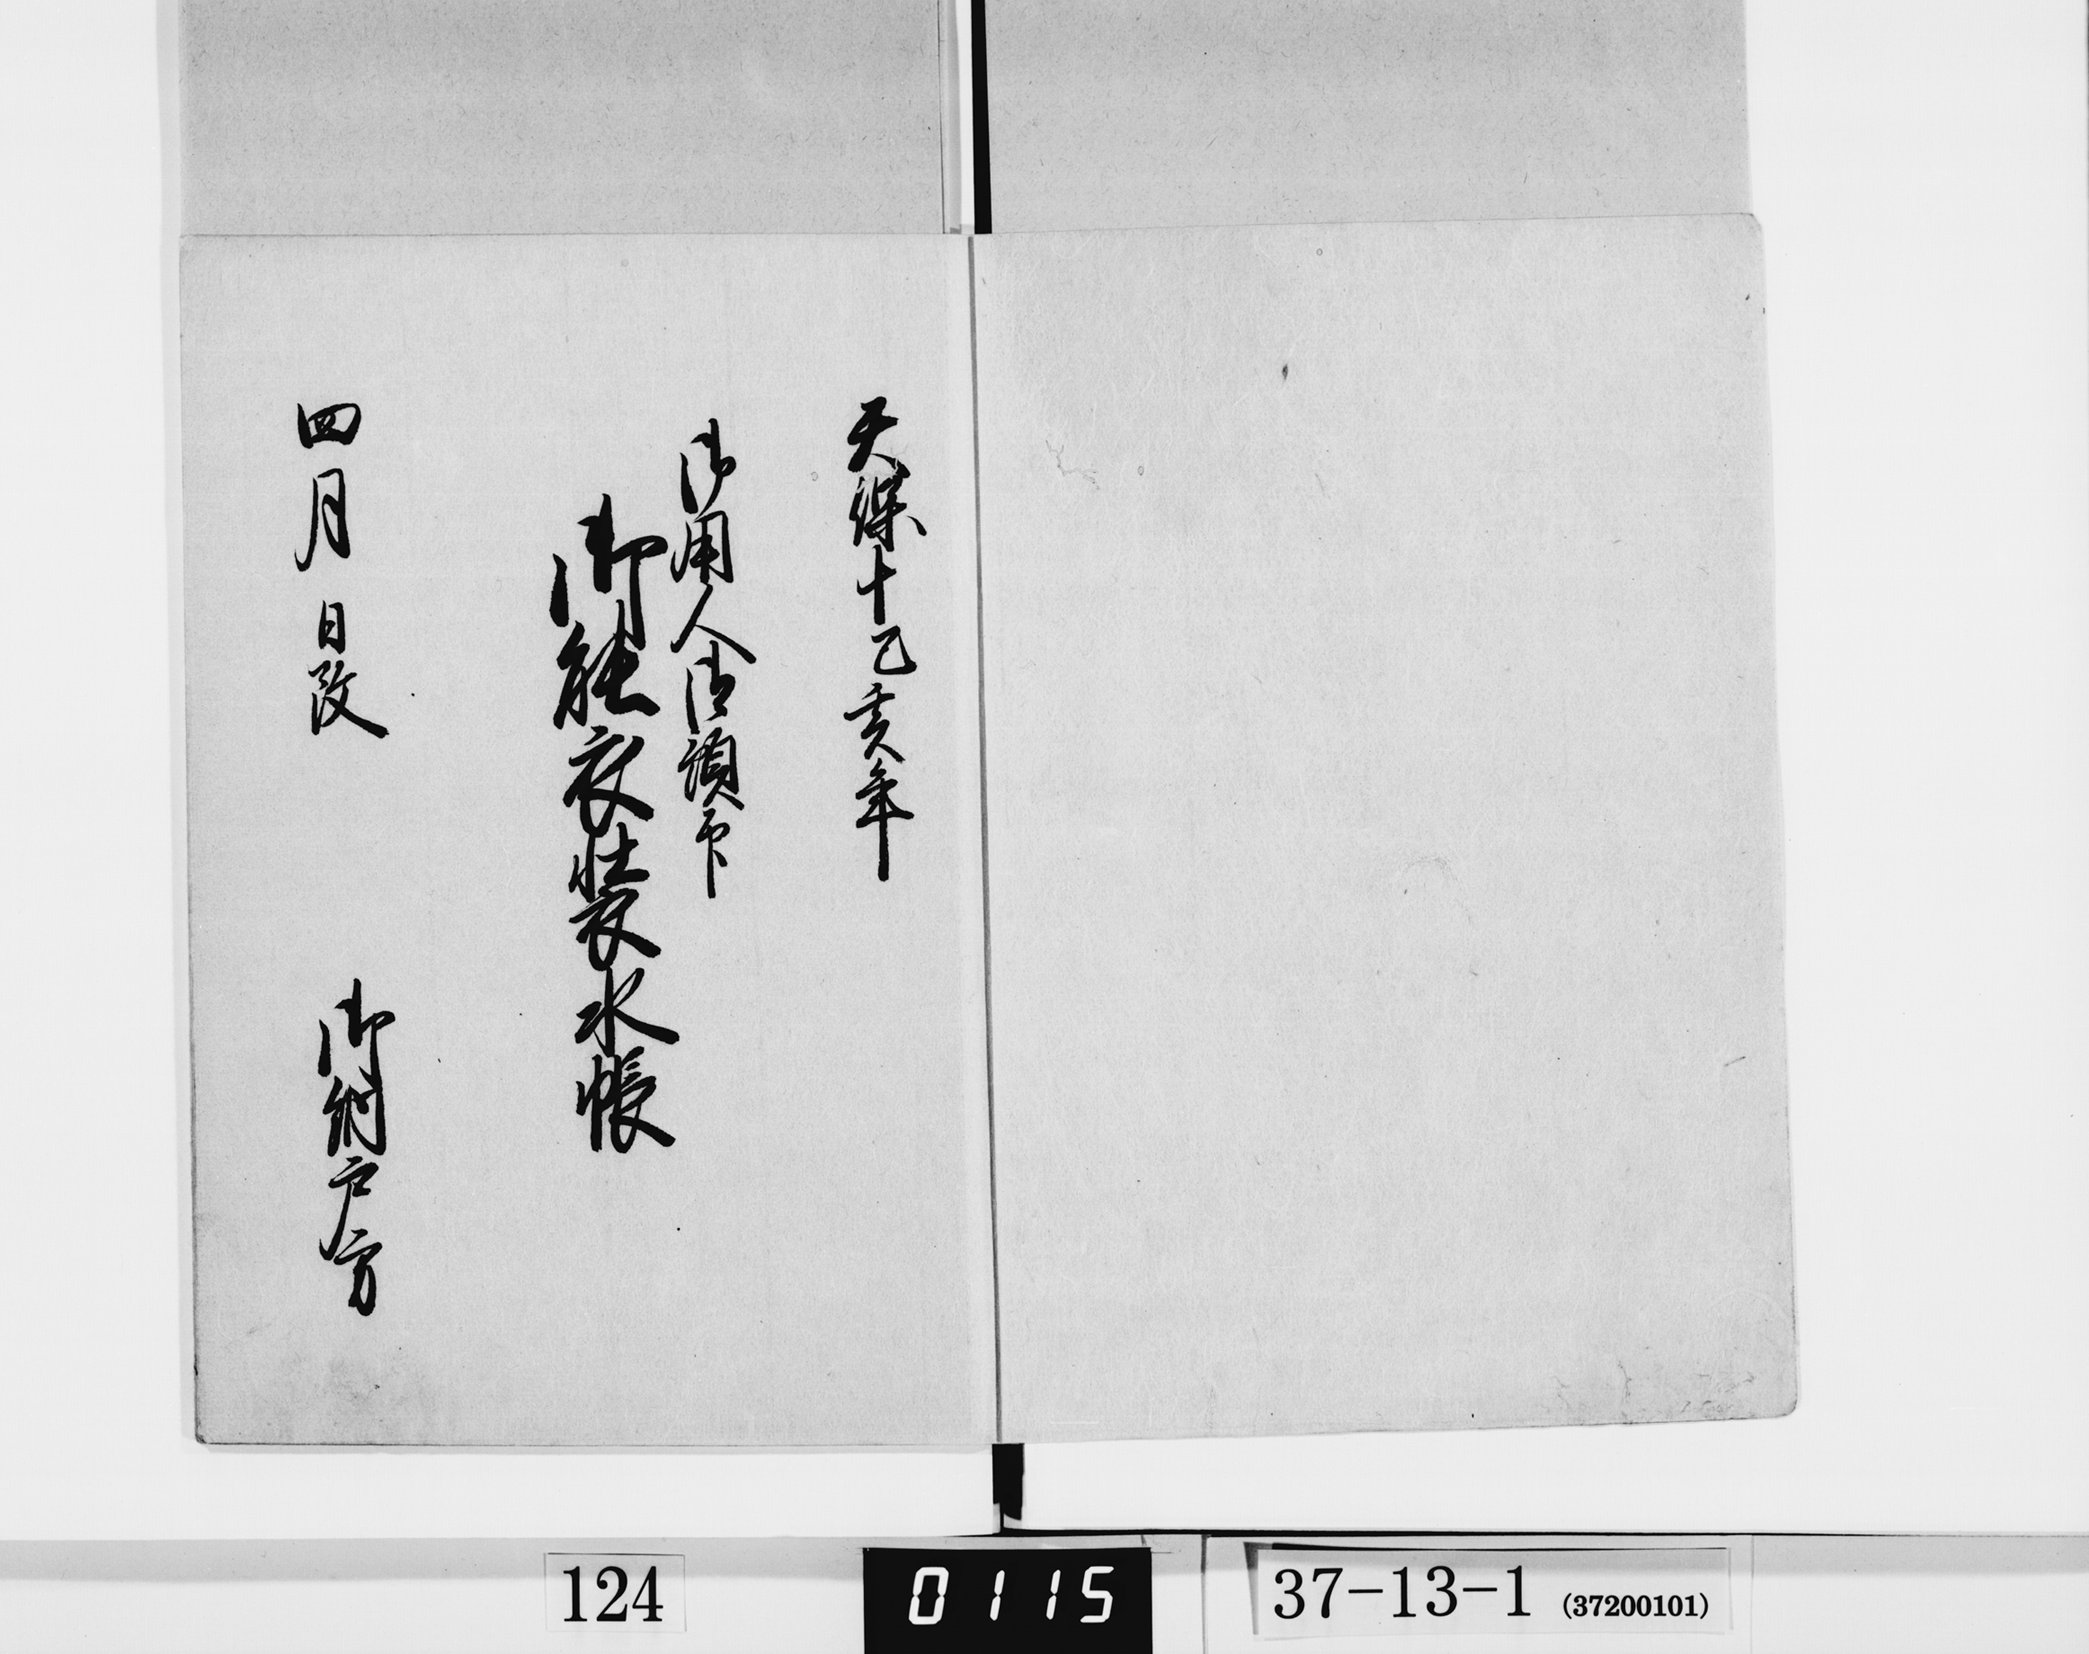 天保十己亥年
御用人御預印
御能衣装水帳
四月 日改
御納戸方
124
0115
37-13-1 (37200101)